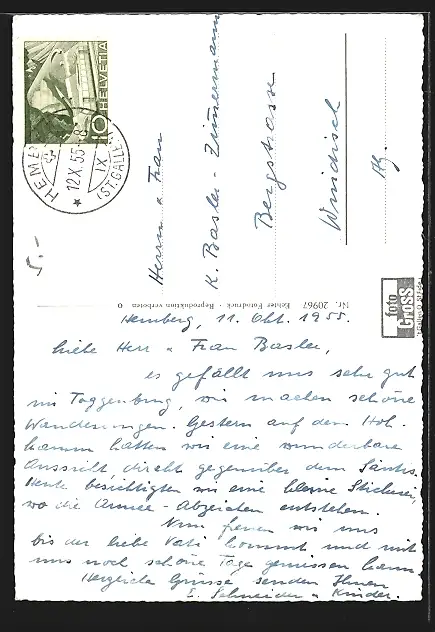 HELVETIA
10
HEMBERG
12.X.55.-8
IX
(ST.GALLEN)
5.-
Herrn u. Frau
K. Basler-Zimmermann
Bergstrasse
Windisch
Ag.
Nr. 20967 Echter Fotodruck · Reproduktion verboten
foto
Gross
Hemberg, 11. Okt. 1955.
Liebe Herr u. Frau Basler,
es gefällt uns sehr gut
im Toggenburg, wir machen schöne
Wanderungen. Gestern auf dem Hoh-
hamm hatten wir eine wunderbare
Aussicht direkt gegenüber dem Säntis.
Heute besichtigten wir eine kleine Stickerei,
wo die Armee-Abzeichen entstehen.
Nun freuen wir uns
bis der liebe Vati kommt und mit
uns noch schöne Tage geniessen kann
Herzliche Grüsse senden Ihnen
E. Schneider u. Kinder.